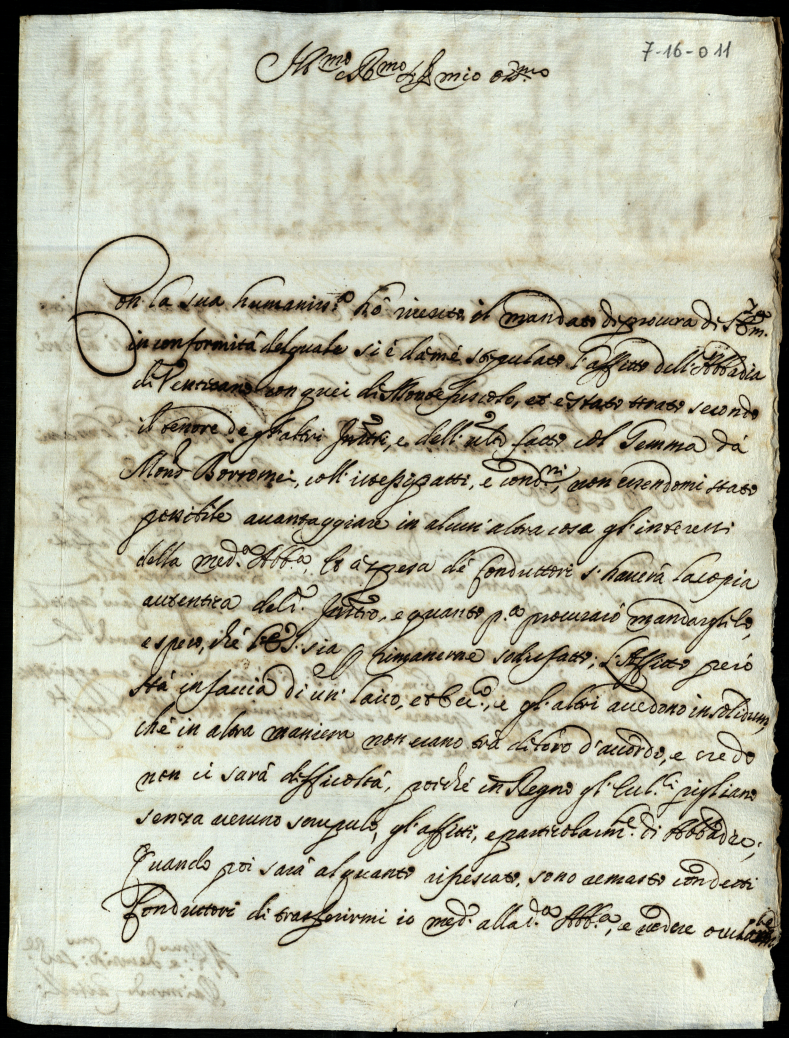 7-16-011
Ill.mo Rmo Sig mio oss.mo
Con la sua humaniss.a hò riceuto il mandato di procura di S. Em.za
in conformità del quale si è da mé stipulato l'affitto dell'Abbadia
di Venticano con quei di Montefuscolo, et è stato tirato secondo
il tenore de gl'altri Instr.ti, e dell'ult.o fatto col Temma dà
Mons.r Borromei, coll'istessi patti, e cond.ni, non essendomi stato
possibile auantaggiare in alcun'altra cosa gl'interessi
della med.a Abb.a. Et à spesa de Conduttori s'hauerà la copia
autentica del d.o Instro, e quanto p.a procurarò mandarglilo,
e spero, ché V.S. sia rimanerne sodisfatto; L'Affitto però
stà in faccia di un' laico, et gl'altri accedono in solidum
ché in altra maniera non erano trà di loro d'accordo, e credo
non ci sarà difficoltà, poiché in Regno gl'Eccl.ci pigliano
senza ueruno scrupulo, gl'affitti, e particolarm.te di Abbadie;
Quando poi sarà alquanto rifrescato, sono remasto con detti
Conduttori di trasferirmi io med.o alla d.a Abb.a, e uedere